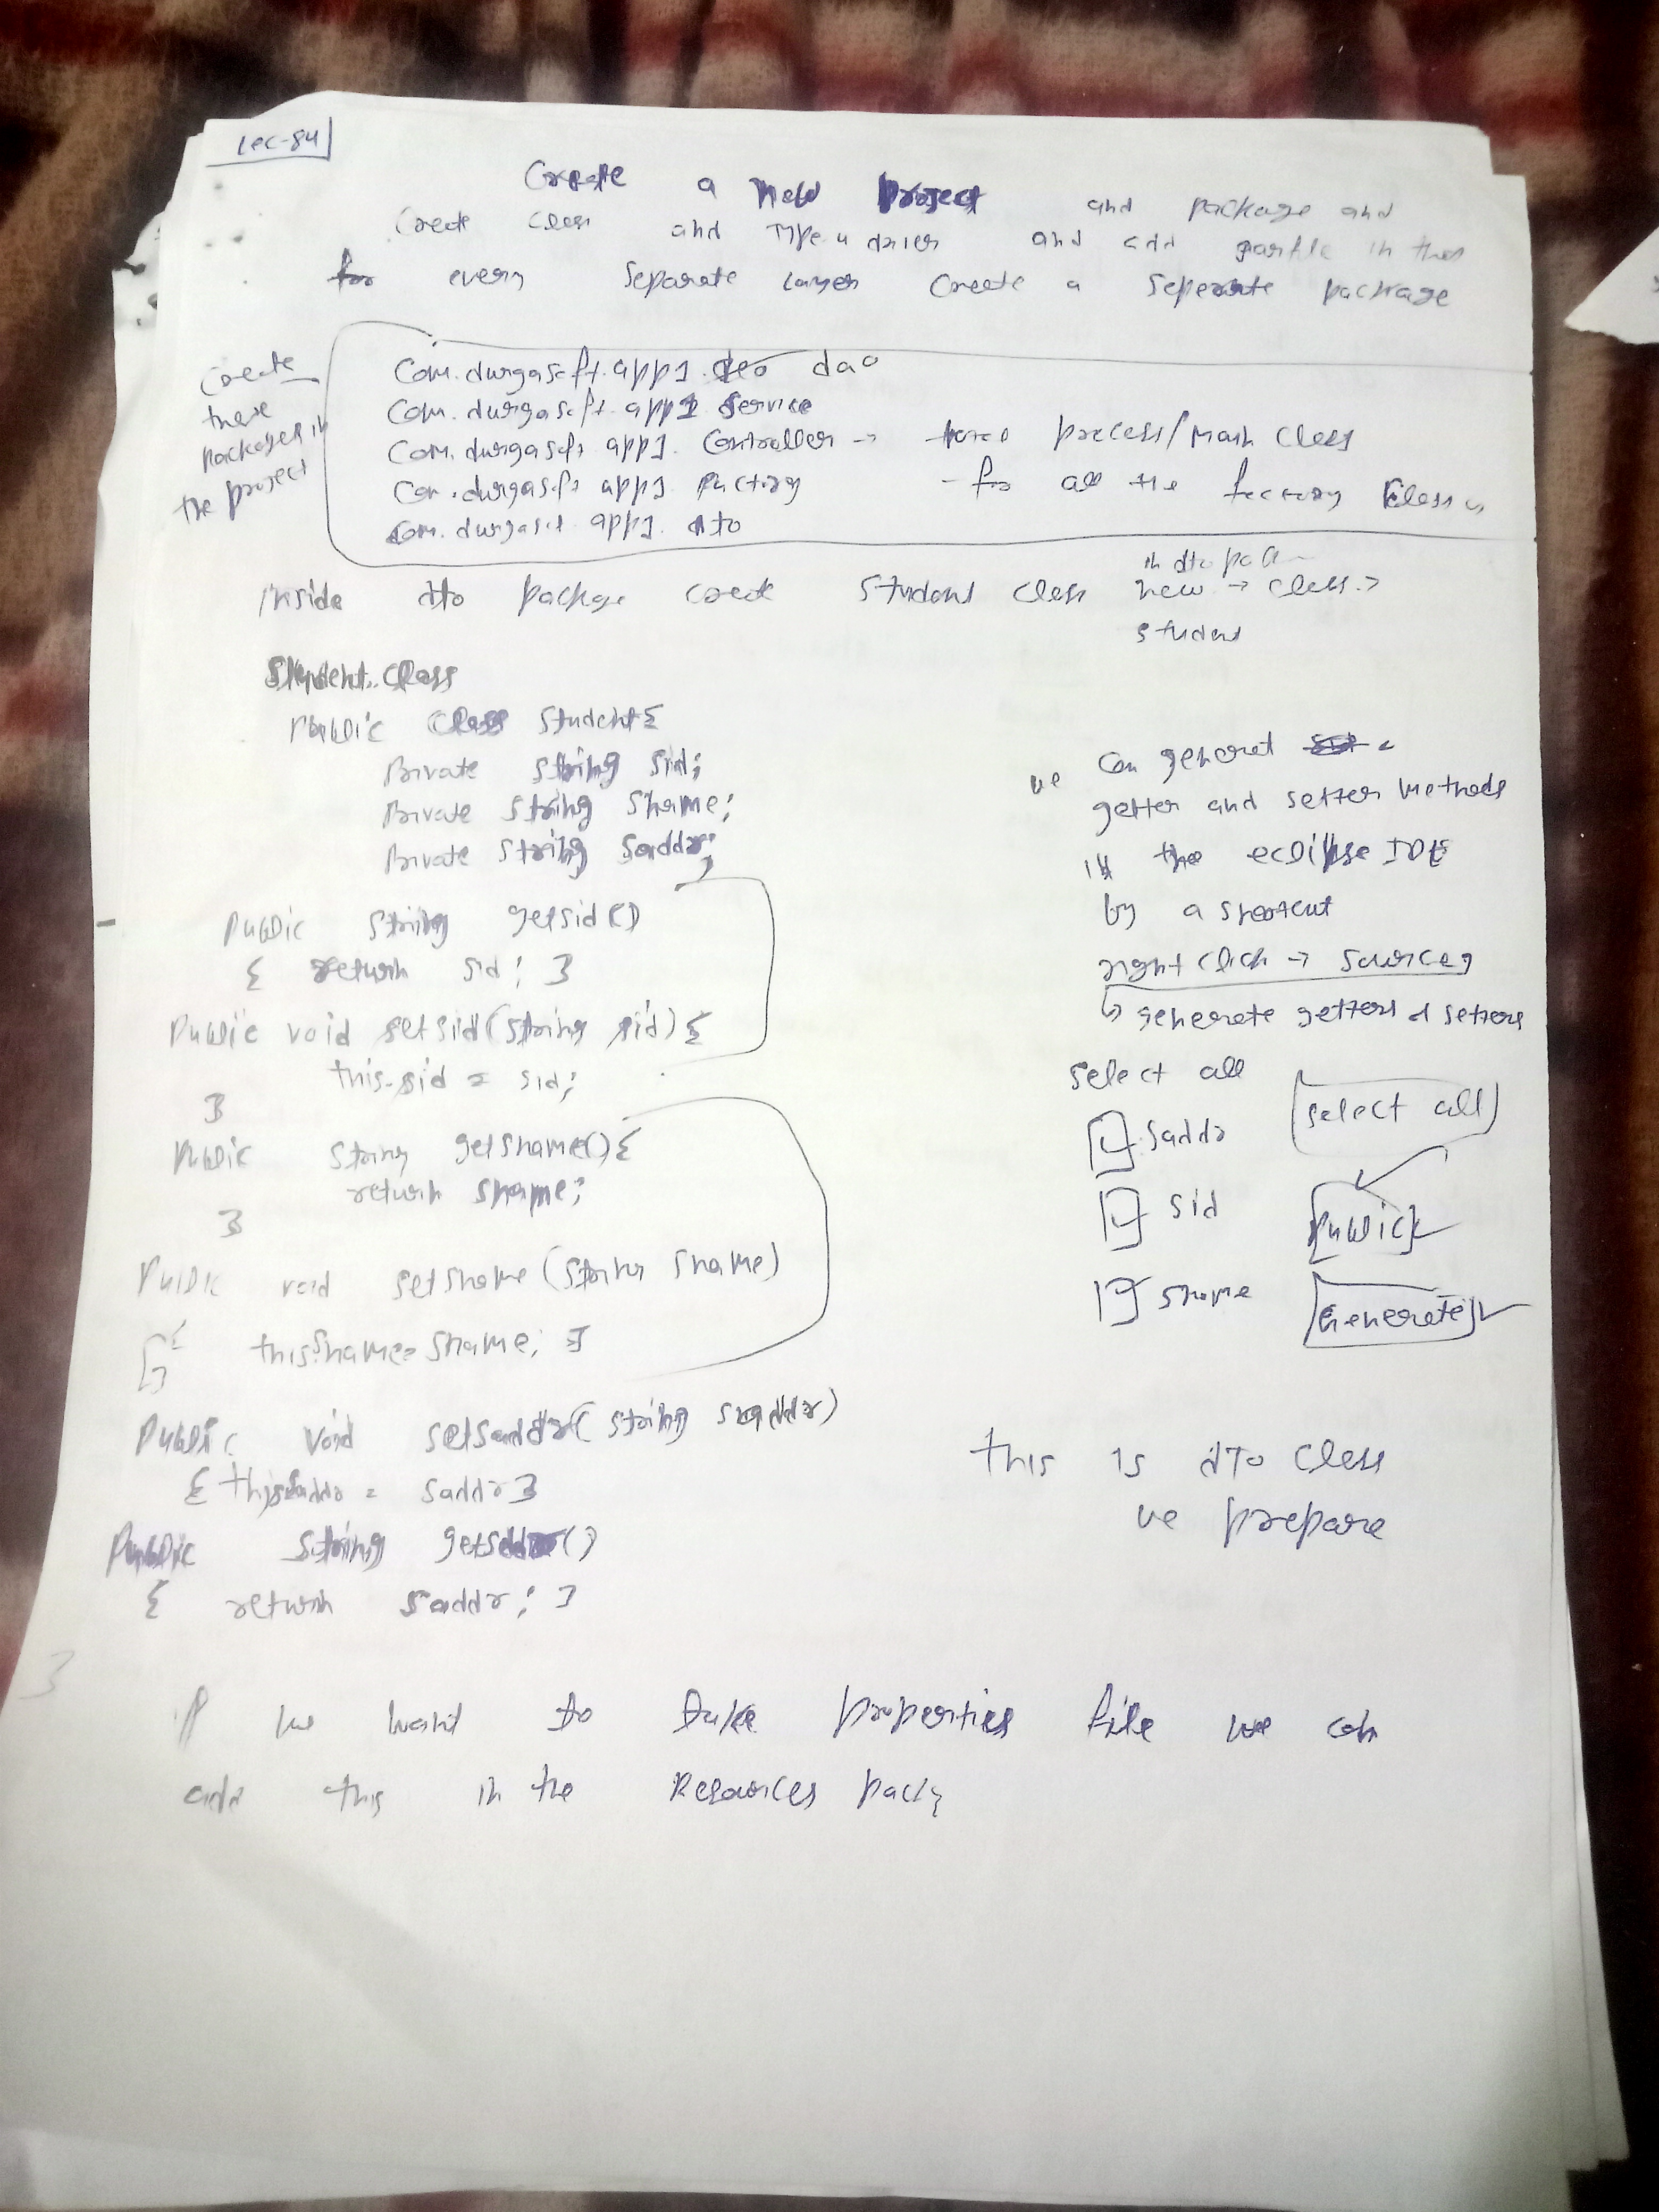 Lec-84
Create a new project and package and
create class and Type 4 driver and add jarfile in this
for every separate layer create a seperate package
create these packages in the project
com.durgasoft.app1. dao
com.durgasoft.app1 service
com.durgasoft app1. controller → process/main class
com.durgasoft app1 factory - for all the factory classes
com.durgasoft app1. dto
inside dto package create student class in dto pack
new → class →
student
Student.class
public class student{
private string sid;
private string sname;
private string saddr;
public string getsid()
{ return sid; }
public void setsid(string sid){
this.sid = sid;
}
public string getsname(){
return sname;
}
public void setsname(string sname)
{ this.sname= sname; }
public void setsaddr(string saddr)
{ this.saddr = saddr }
public string getsaddr()
{ return saddr; }
}
we can generat
getter and setter methods
in the eclipse IDE
by a shortcut
right click → source
↳ generate getters & setters
select all
saddr select all
sid public
sname Generate
this is dto class
we prepare
if we want to take properties file we can
add this in the resources pack